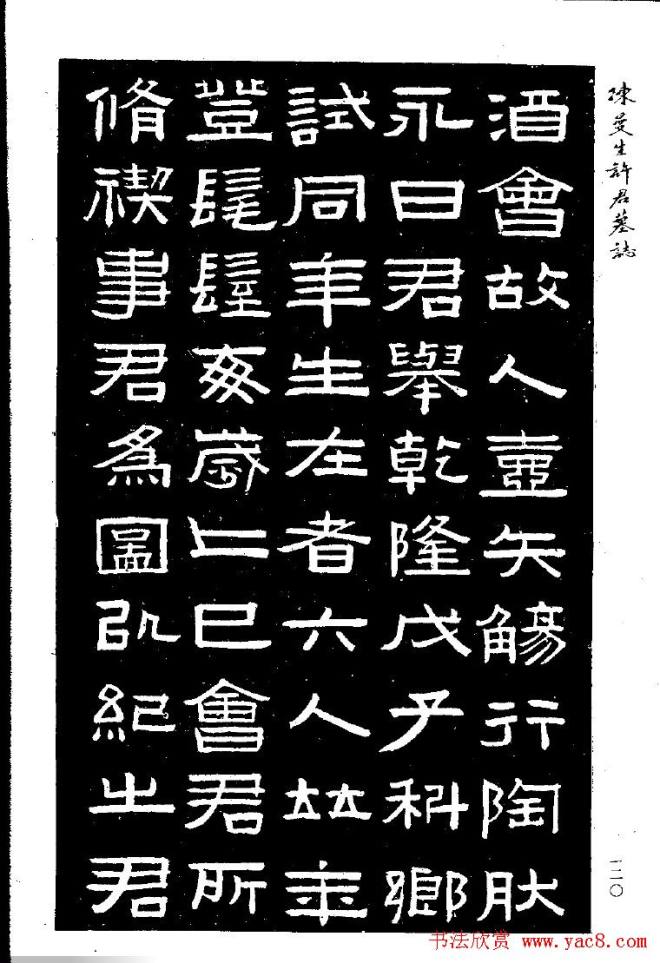 陳曼生許君墓誌
酒會故人壺矢觴行陶肰
永日君舉乾隆戊午科鄉
試同年生在者六人竝年
登耄耋每歲上巳會君所
脩禊事君爲圖以紀之君
一二〇
书法欣赏 www.yac8.com